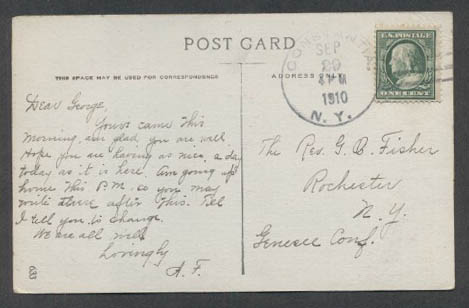 POST CARD
THIS SPACE MAY BE USED FOR CORRESPONDENCE
ADDRESS ONLY
CONSTANTIA
SEP
29
4 PM
1910
N. Y.
U.S. POSTAGE
ONE CENT
Dear George,
Yours came this
morning, am glad you are well
Hope you are having as nice a day
today as it is here. Am going up
home this P.M. so you may
write there after this. Till
I tell you to change.
We are all well
Lovingly
A. F.
The Rev. G. B. Fisher
Rochester
N. Y.
Genesee Conf.